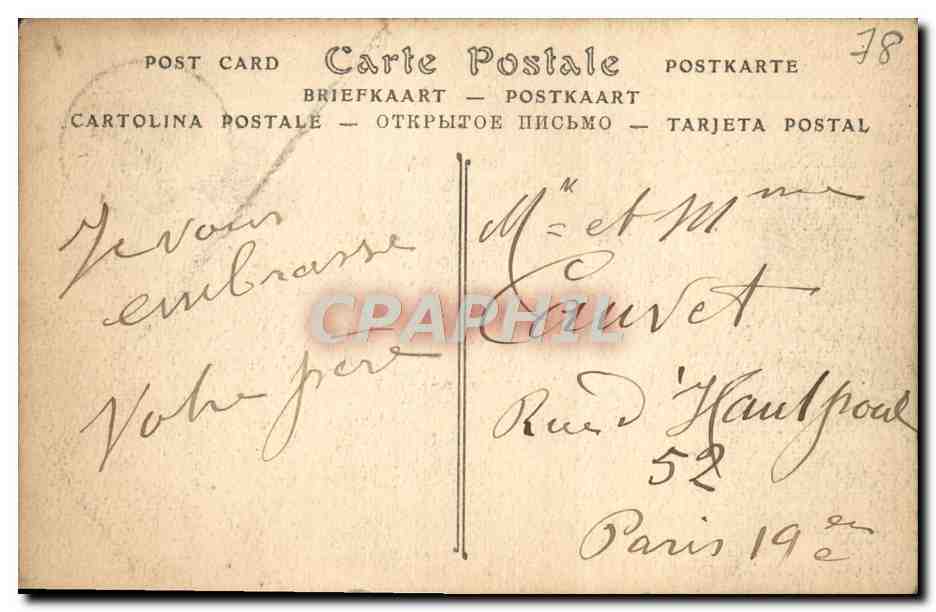 78
POST CARD Carte Postale POSTKARTE
BRIEFKAART — POSTKAART
CARTOLINA POSTALE — ОТКРЫТОЕ ПИСЬМО — TARJETA POSTAL
Je vous
embrasse
Votre père
Mr et Mme
Cauvet
Rue d'Hautpoul
52
Paris 19e
CPAPHIL